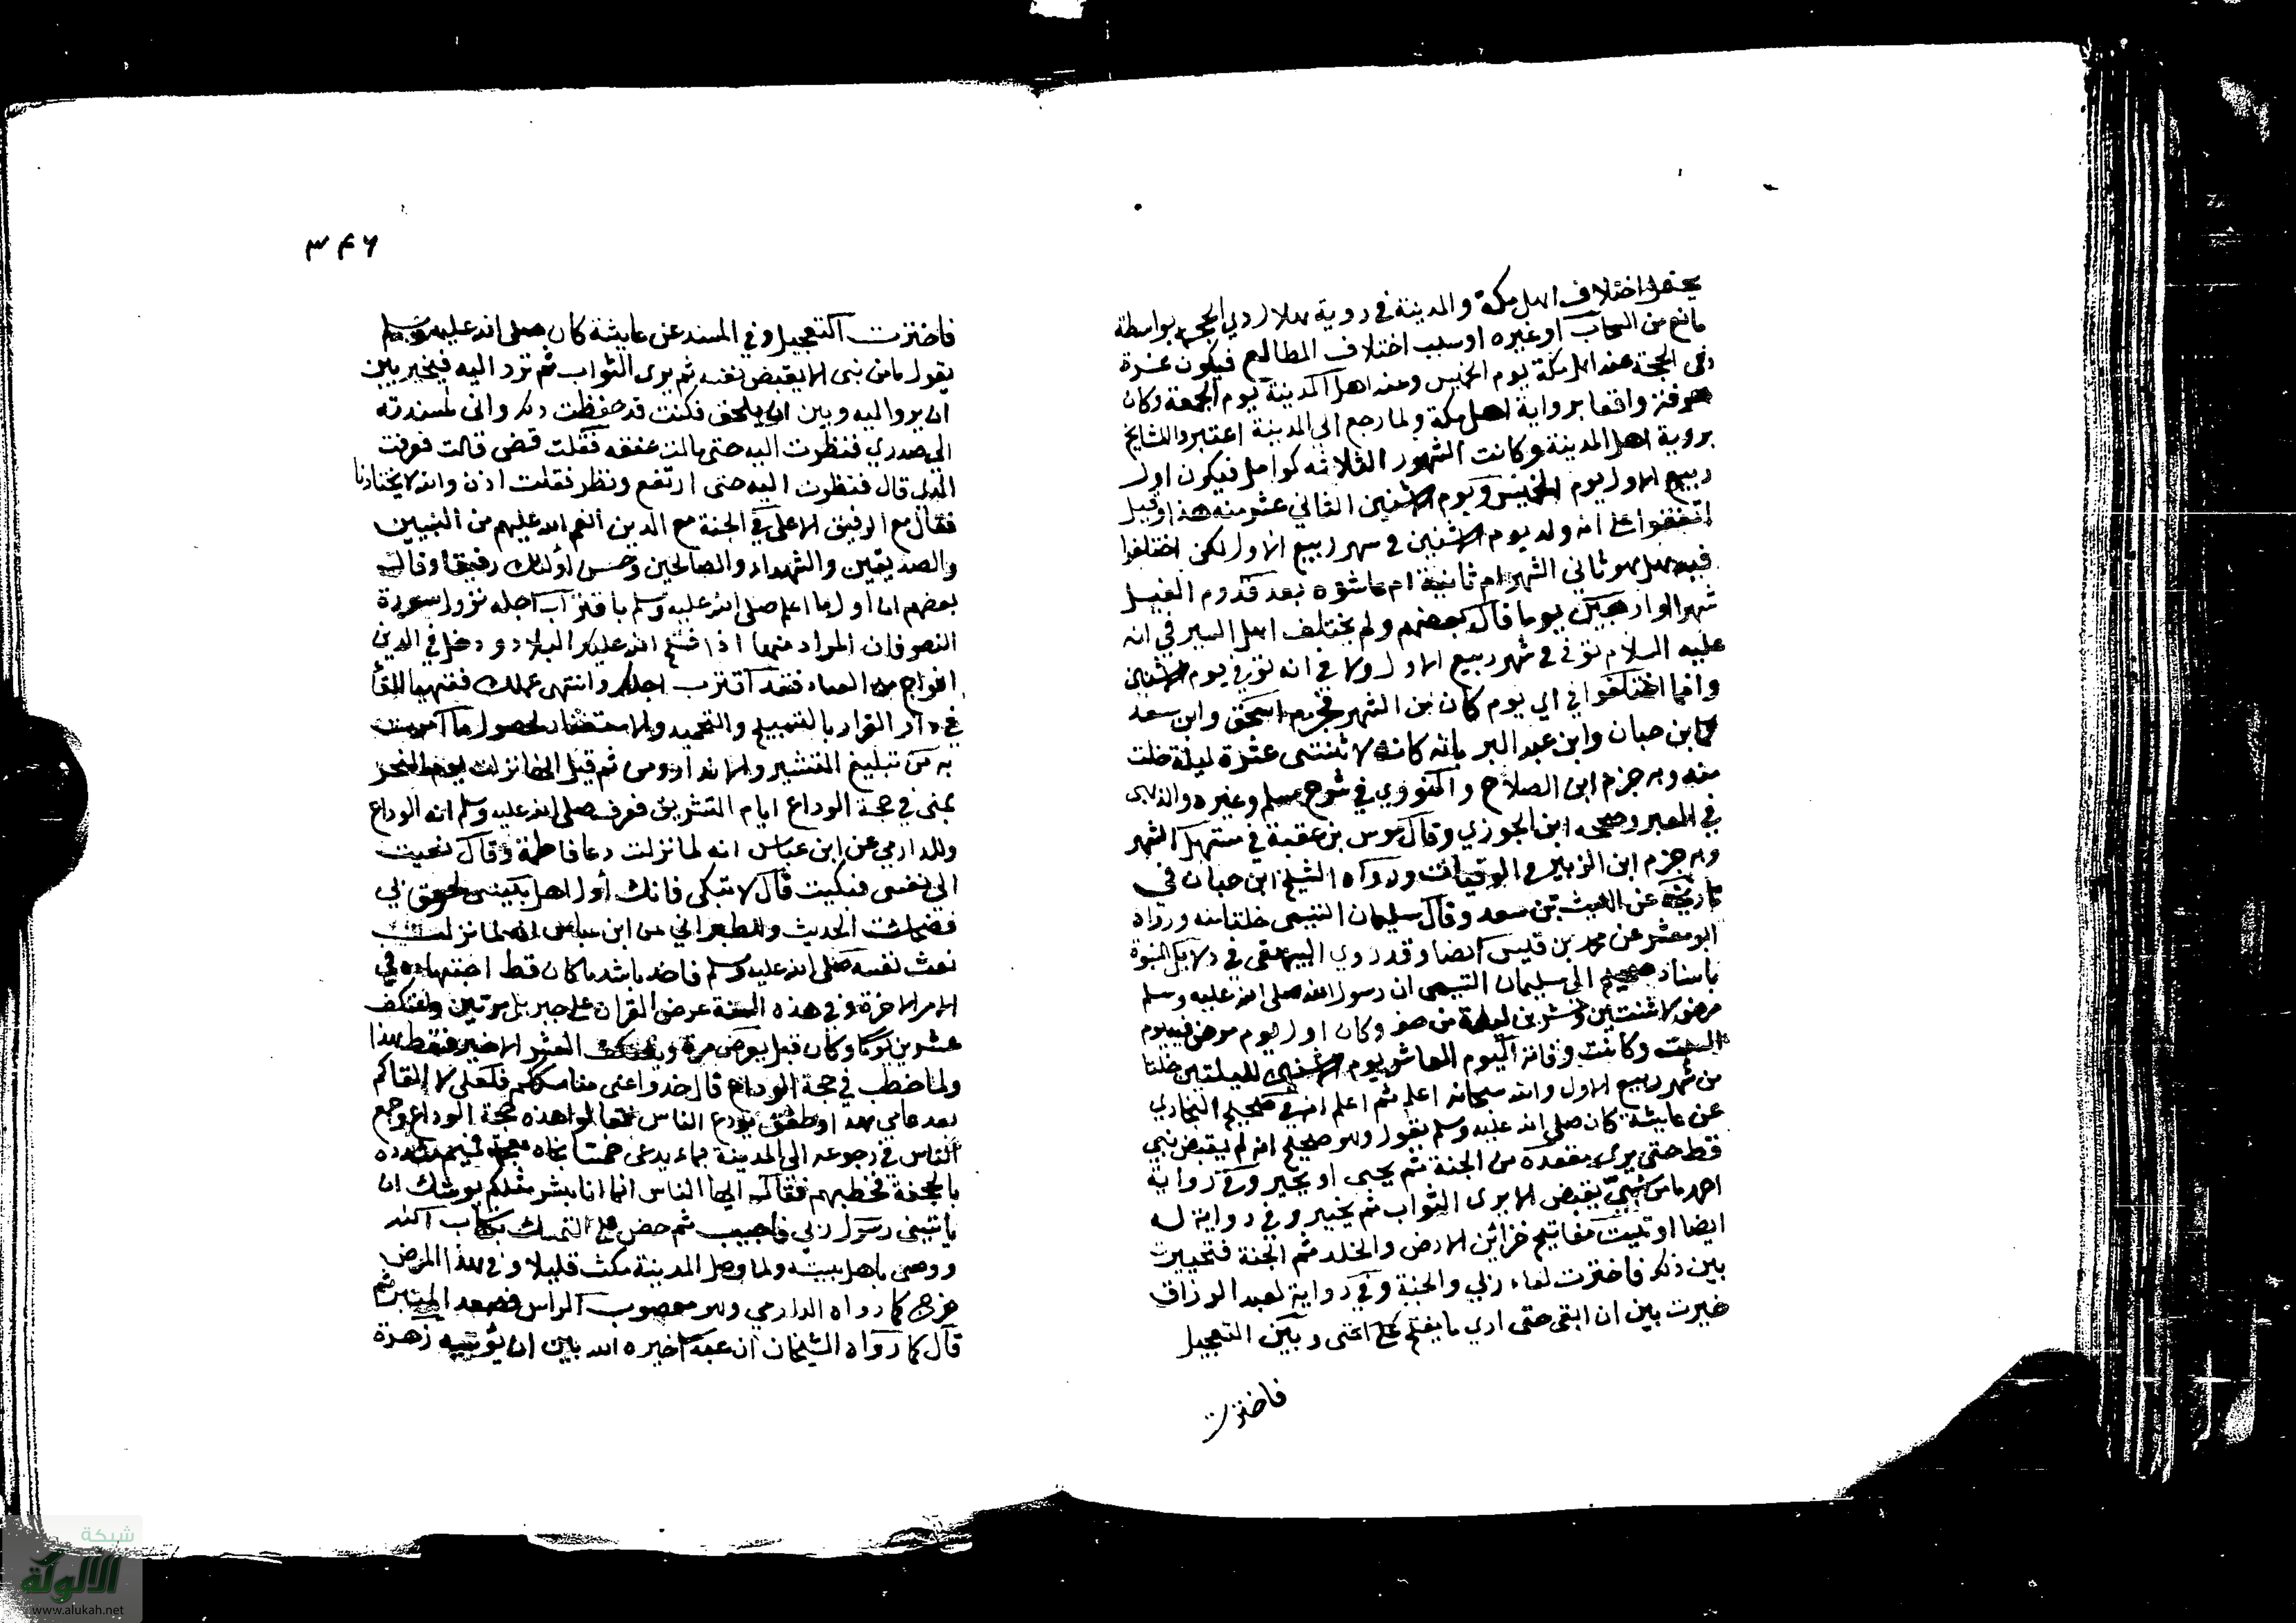 يحتمل اختلاف اهل مكة والمدينة في روية هلال ذي الحجة بواسطة
مانع من السحاب او غيره او سبب اختلاف المطالع فيكون غرة
ذي الحجة عند اهل مكة يوم الخميس وعند اهل المدينة يوم الجمعة وكان
واقعا برواية اهل مكة ولما رجع الى المدينة اعتبر والتاريخ
بروية اهل المدينة وكانت الشهور الثلاثه كوامل فيكون اول
ربيع الاول يوم الخميس ويوم الاثنين الثاني عشر منه هذا وقيل
اتفقوا على انه ولد يوم الاثنين في شهر ربيع الاول لكن اختلفوا
فيه هل هو ثاني الشهر ام ثامنه ام عاشره بعد قدوم الفيل
شهر او اربعين يوما قال بعضهم ولم يختلف اهل السير في انه
عليه السلام توفي في شهر ربيع الاول ولا في انه توفي يوم الاثنين
وانما اختلفوا في اي يوم كان من الشهر فجزم اسحق وابن سعد
وابن حبان وابن عبد البر بانه كان لاثنتى عشرة ليلة خلت
منه وبه جزم ابن الصلاح والنووي في شرح مسلم وغيره والذهبى
في العبر وصححه ابن الجوزي وقال موسى بن عقبة في مستهل الشهر
وبه جزم ابن الزبير في الوفيات ورواه الشيخ ابن حبان في
تاريخه عن الليث بن سعد وقال سليمان التيمى خلتا منه ورواه
ابو معشر عن محمد بن قيس ايضا وقد روي البيهقي في دلايل النبوة
باسناد صحيح الى سليمان التيمى ان رسول الله صلى الله عليه وسلم
مرض لاثنتين وعشرين ليلة من صفر وكان اول يوم مرض فيه يوم
السبت وكانت وفاته اليوم العاشر يوم الاثنين لليلتين خلتا
من شهر ربيع الاول والله سبحانه اعلم ثم اعلم انه في صحيح البخاري
عن عايشة كان صلى الله عليه وسلم يقول وهو صحيح انه لم يقبض نبي
قط حتى يرى مقعده من الجنة ثم يحيى او يخير وفي رواية
احمد ما من نبي يقبض الا يرى الثواب ثم يخير وفي رواية له
ايضا اوتيت مفاتيح خزائن الارض والخلد ثم الجنة فخيرت
بين ذلك فاخترت لقاء ربي والجنة وفي رواية لعبد الرزاق
خيرت بين ان ابقى حتى ارى ما يفتح على امتى وبين التعجيل
فاخترت
٣٤٦
فاخترت التعجيل وفي المسند عن عايشة كان صلى الله عليه وسلم
يقول ما من نبى الا يقبض نفسه ثم يرى الثواب ثم ترد اليه فيخير بين
ان يرد اليه وبين ان يلحق فكنت قد حفظت ذلك وانى لمسندته
الى صدري فنظرت اليه حتى مالت عنقه فقلت قضى قالت فعرفت
الذي قال فنظرت اليه حتى ارتفع ونظر فقلت اذن والله لا يختارنا
فقال مع الرفيق الاعلى في الجنة مع الذين انعم الله عليهم من النبيين
والصديقين والشهداء والصالحين وحسن اولئك رفيقا وقال
بعضهم ان اول ما اعلم صلى الله عليه وسلم باقتراب اجله نزول سورة
النصر فان المراد منها اذا فتح الله عليك البلاد ودخل في الدين
افواج من العباد فقد اقترب اجلك وانتهى عملك فتهيا للقا
في دار القرار بالتسبيح والتحميد والاستغفار لحصول ما امرت
به من تبليغ التبشير والانذار ومن ثم قيل انها نزلت يوم النحر
بمنى في حجة الوداع ايام التشريق فعرف صلى الله عليه وسلم انه الوداع
وللدارمي عن ابن عباس انه لما نزلت دعا فاطمة وقال نعيت
الى نفسى فبكيت قال لا تبكى فانك اول اهل بيتى لحوق بي
فضحكت الحديث وللطبراني من ابن عباس انه لما نزلت
نعت نفسه صلى الله عليه وسلم فاخذ باشد ما كان قط اجتهاده في
امر الاخرة وفي هذه السنة عرض القران على جبريل مرتين واعتكف
عشرين يوما وكان قبل يعرض مرة ويعتكف العشر الاخير فقط هذا
ولما خطب في حجة الوداع قال خذوا عنى مناسككم فلعلى لا القاكم
بعد عامي هذا وطفق يودع الناس فقالوا هذه حجة الوداع وجمع
الناس في رجوعه الى المدينة بماء يدعى خمتا
بالجحفة فخطبهم فقال ايها الناس انما انا بشر مثلكم يوشك ان
ياتينى رسول ربي فاجيب ثم حض على التمسك بكتاب الله
ووصى باهل بيته ولما وصل المدينة مكث قليلا وفي هذا المرض
خرج كما رواه الدارمي وهو معصوب الراس فصعد المنبر ثم
قال كما رواه الشيخان ان عبدا خيره الله بين ان يؤتيه زهرة
شبكة
الألوكة
www.alukah.net